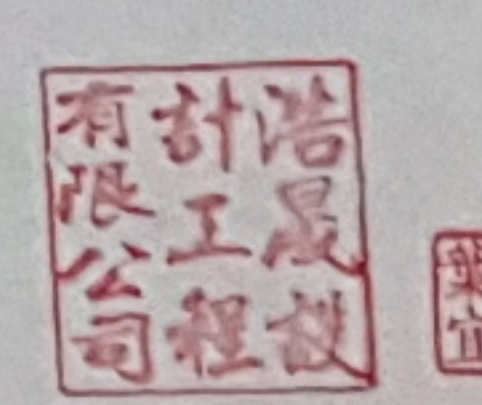 浩晟設
計工程
有限公司